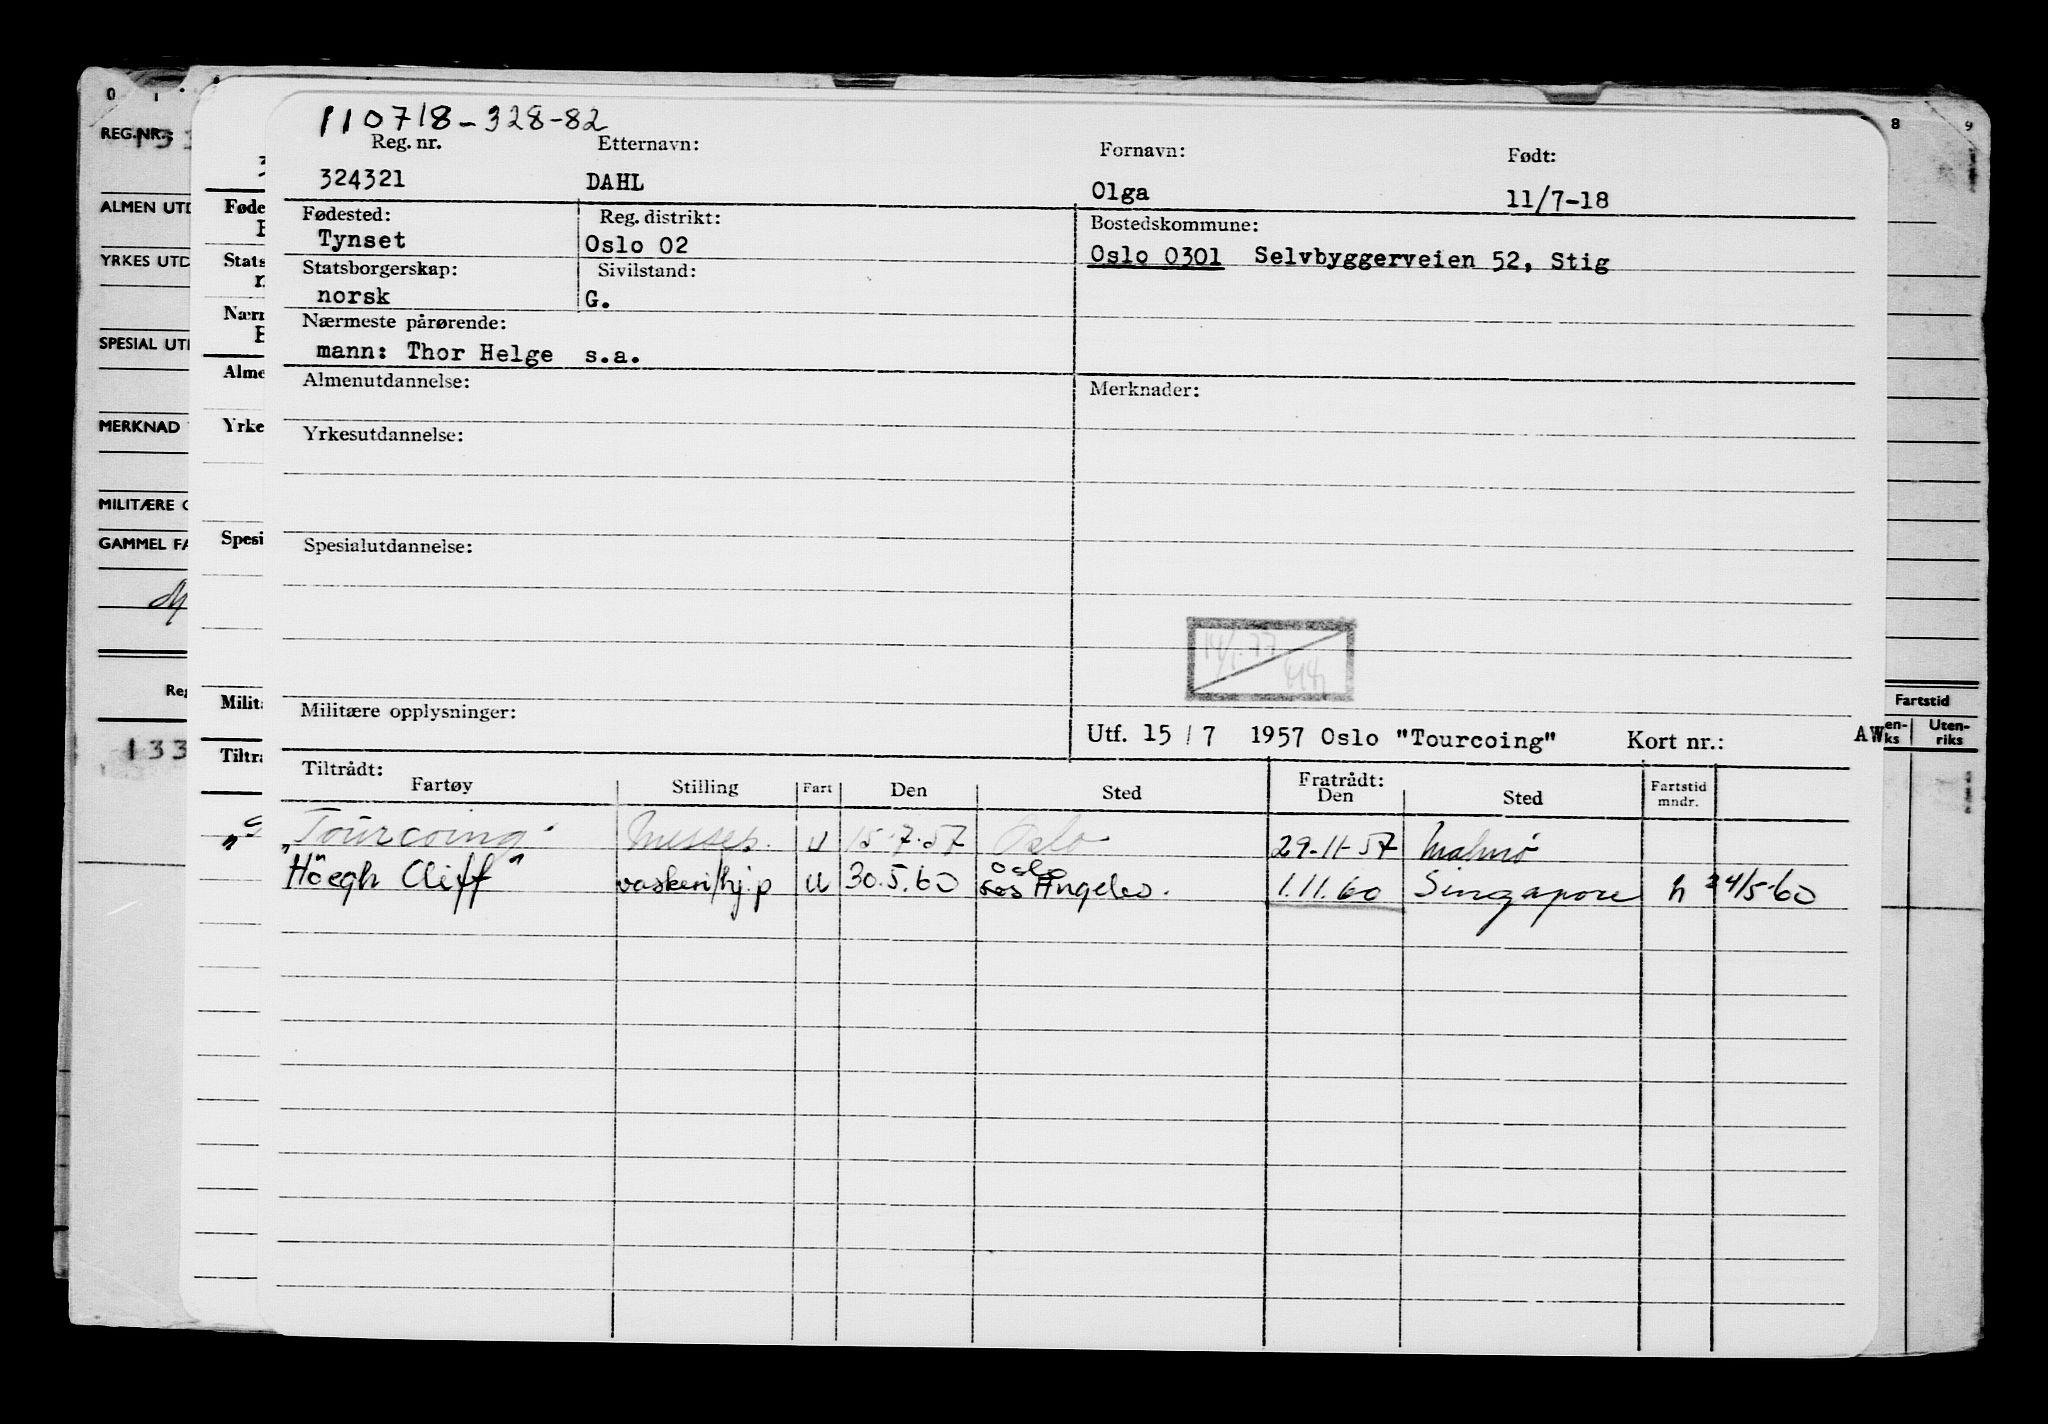 110718-328-82
Reg. nr. Etternavn: Fornavn: Født:
324321 DAHL Olga 11/7-18
Fødested: Reg. distrikt: Bostedskommune:
Tynset Oslo 02 Oslo 0301 Selvbyggerveien 52, Stig
Statsborgerskap: Sivilstand:
norsk G.
Nærmeste pårørende:
mann: Thor Helge s.a.
Almenutdannelse: Merknader:
Yrkesutdannelse:
Spesialutdannelse:
14/1.77
Militære opplysninger:
Utf. 15/7 1957 Oslo "Tourcoing" Kort nr.: AW
Tiltrådt: Fratrådt:
Fartøy Stilling Fart Den Sted Den Sted Fartstid mndr.
"Tourcoing" Messep. U 15-7-57 Oslo 29-11-57 Malmö
"Höegh Cliff" vaskeri/hj.p U 30.5.60 Oslo Los Angeles. 1.11.60 Singapore h 24/5-60
0 1 8 9
REG.NR.
ALMEN UTD
YRKES UTD
SPESIAL UTD
MERKNAD
MILITÆRE O
GAMMEL FA
Reg
133
Føde
Stats
Nærm
Alme
Yrke
Spesi
Milit
Tiltrå
Fartstid
en-ks Uten-riks